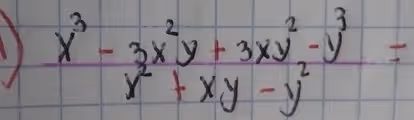 ) x³ - 3x²y + 3xy² - y³ =
x² + xy - y²